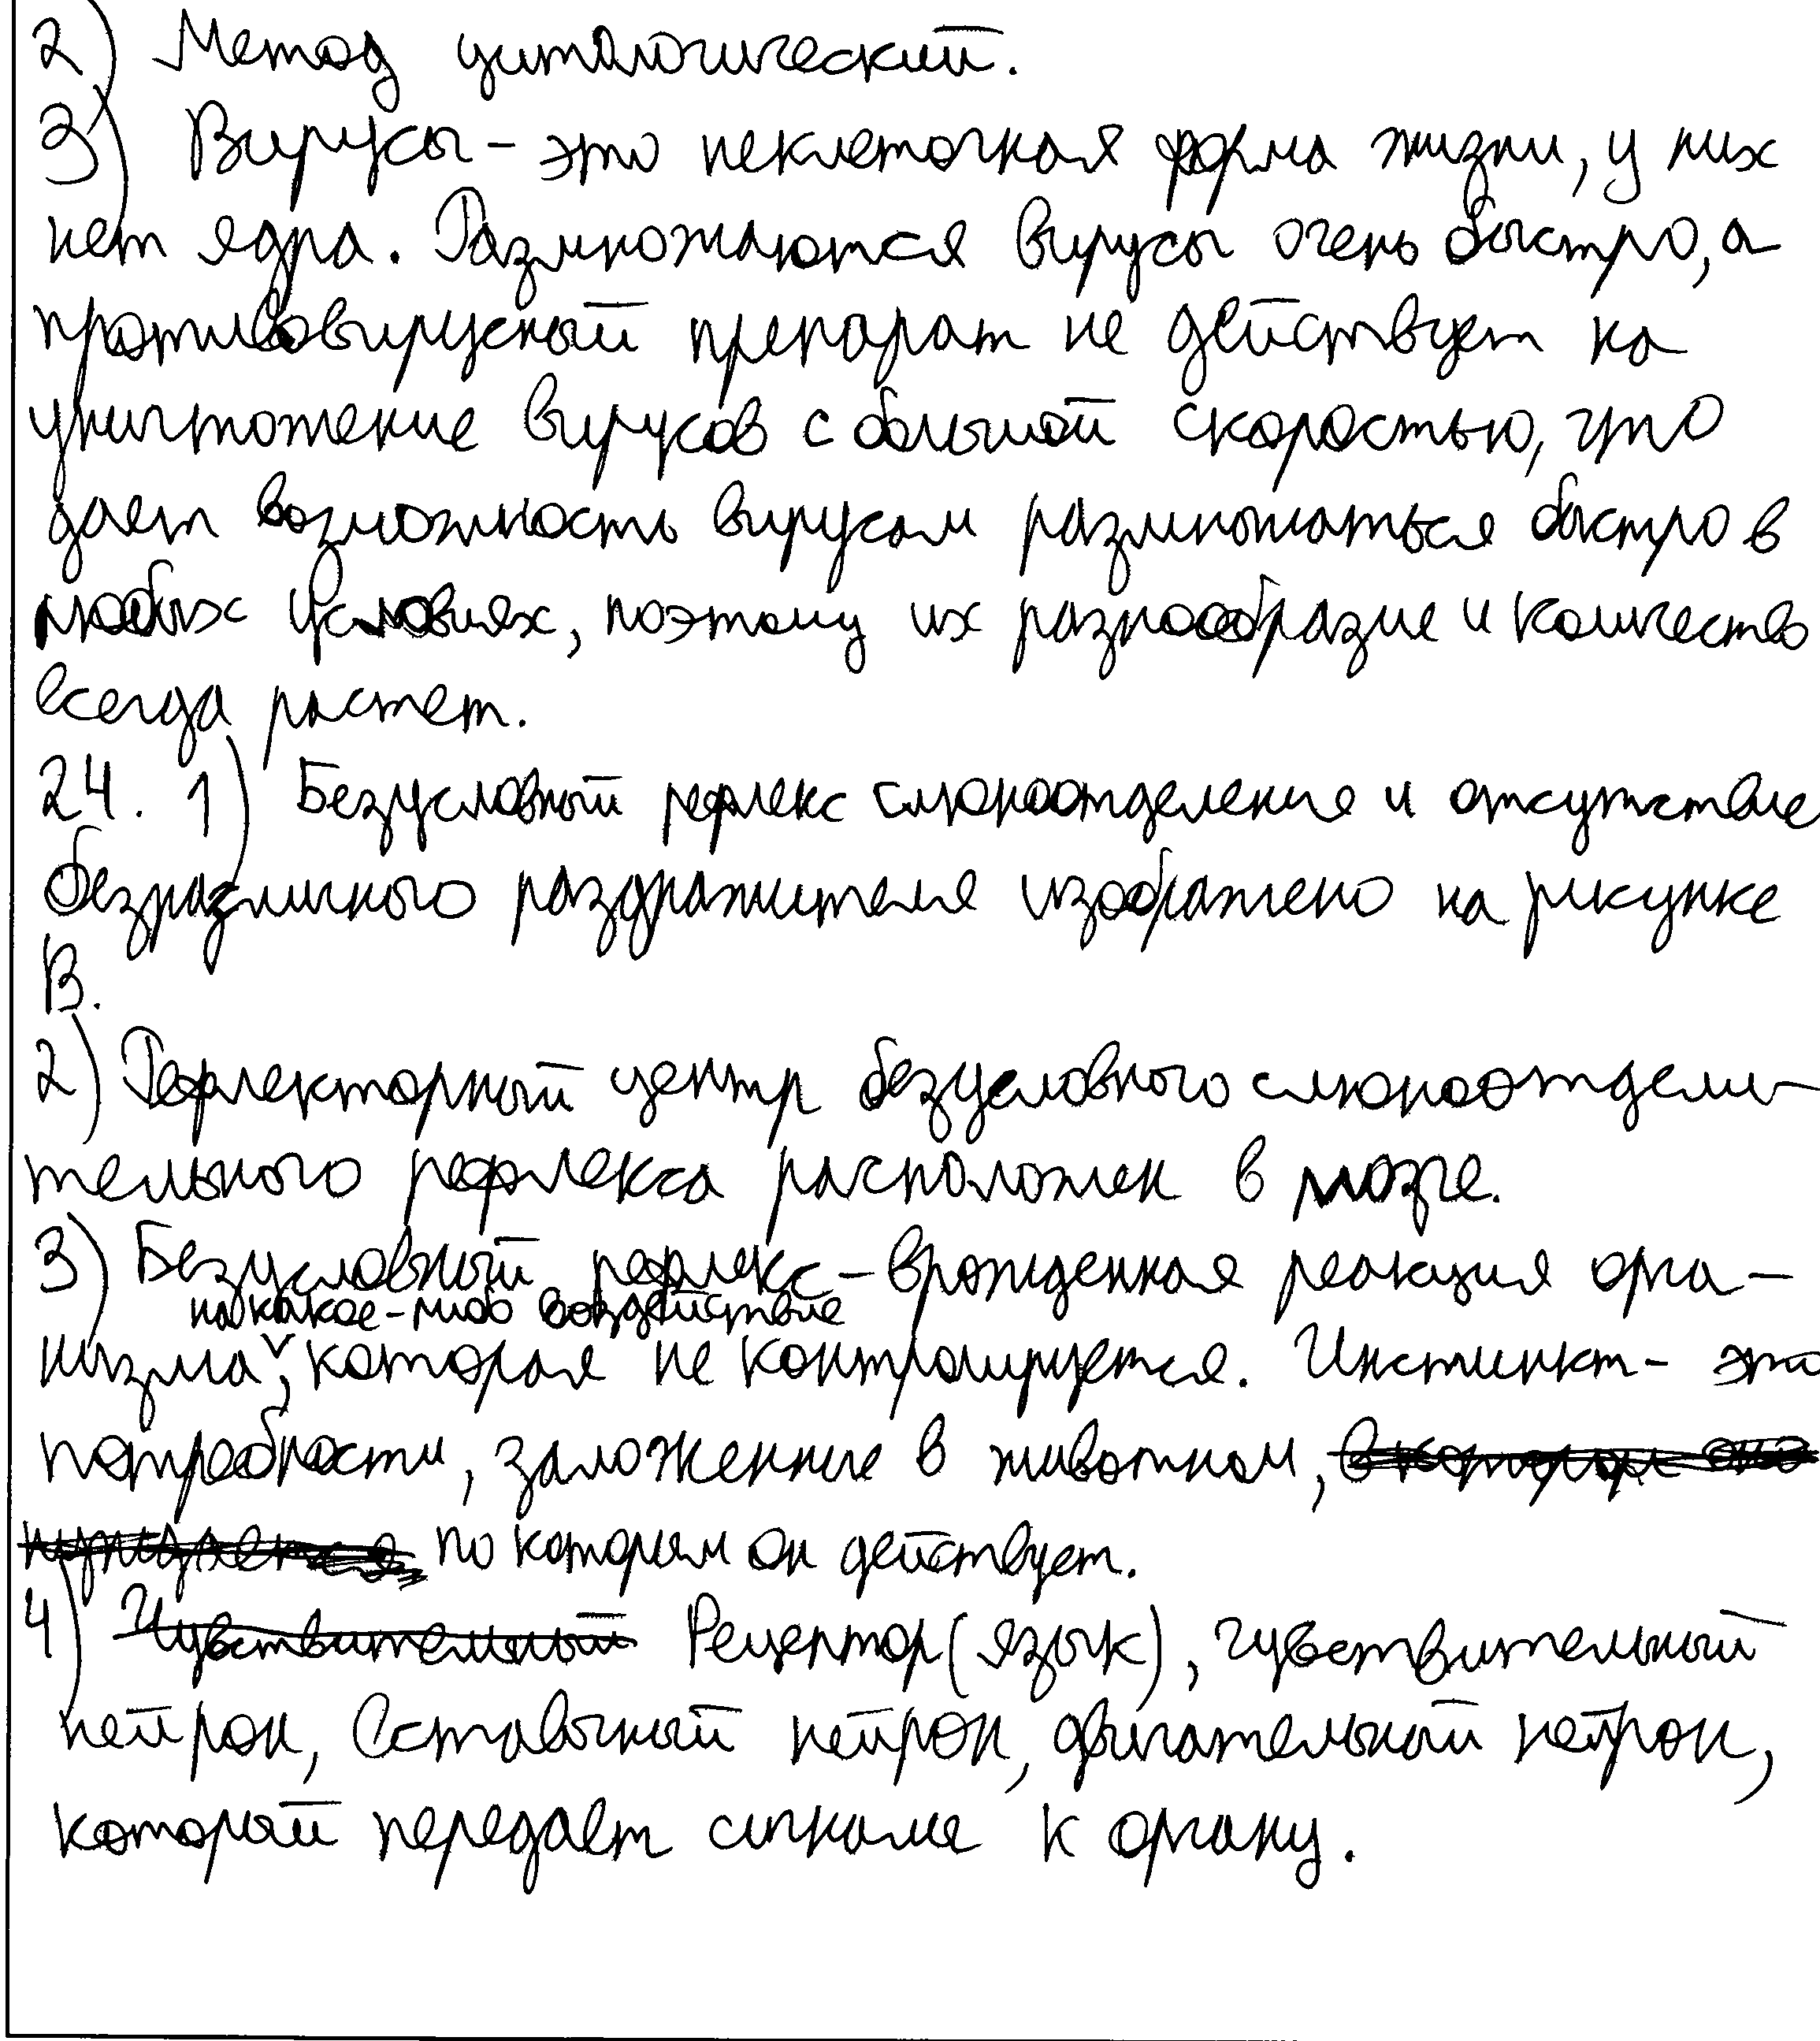 2) Метод цитологический.
3) Вирусы - это неклеточная форма жизни, у них
нет ядра. Размножаются вирусы очень быстро, а
противовирусный препарат не действует на
уничтожение вирусов с большой скоростью, что
дает возможность вирусам размножаться быстро в
любых условиях, поэтому их разнообразие и количество
всегда растет.
24. 1) Безусловный рефлекс слюноотделения и отсутствие
безразличного раздражителя изображено на рисунке
В.
2) Рефлекторный центр безусловного слюноотдели-
тельного рефлекса расположен в мозге.
3) Безусловный рефлекс - врожденная реакция орга-
на какое-либо воздействие
низма, которая не контролируется. Инстинкт - это
потребности, заложенные в животном, в котором оно
нуждается по которым он действует.
4) Чувствительный Рецептор (язык), чувствительный
нейрон, вставочный нейрон, двигательный нейрон,
который передает сигналы к органу.